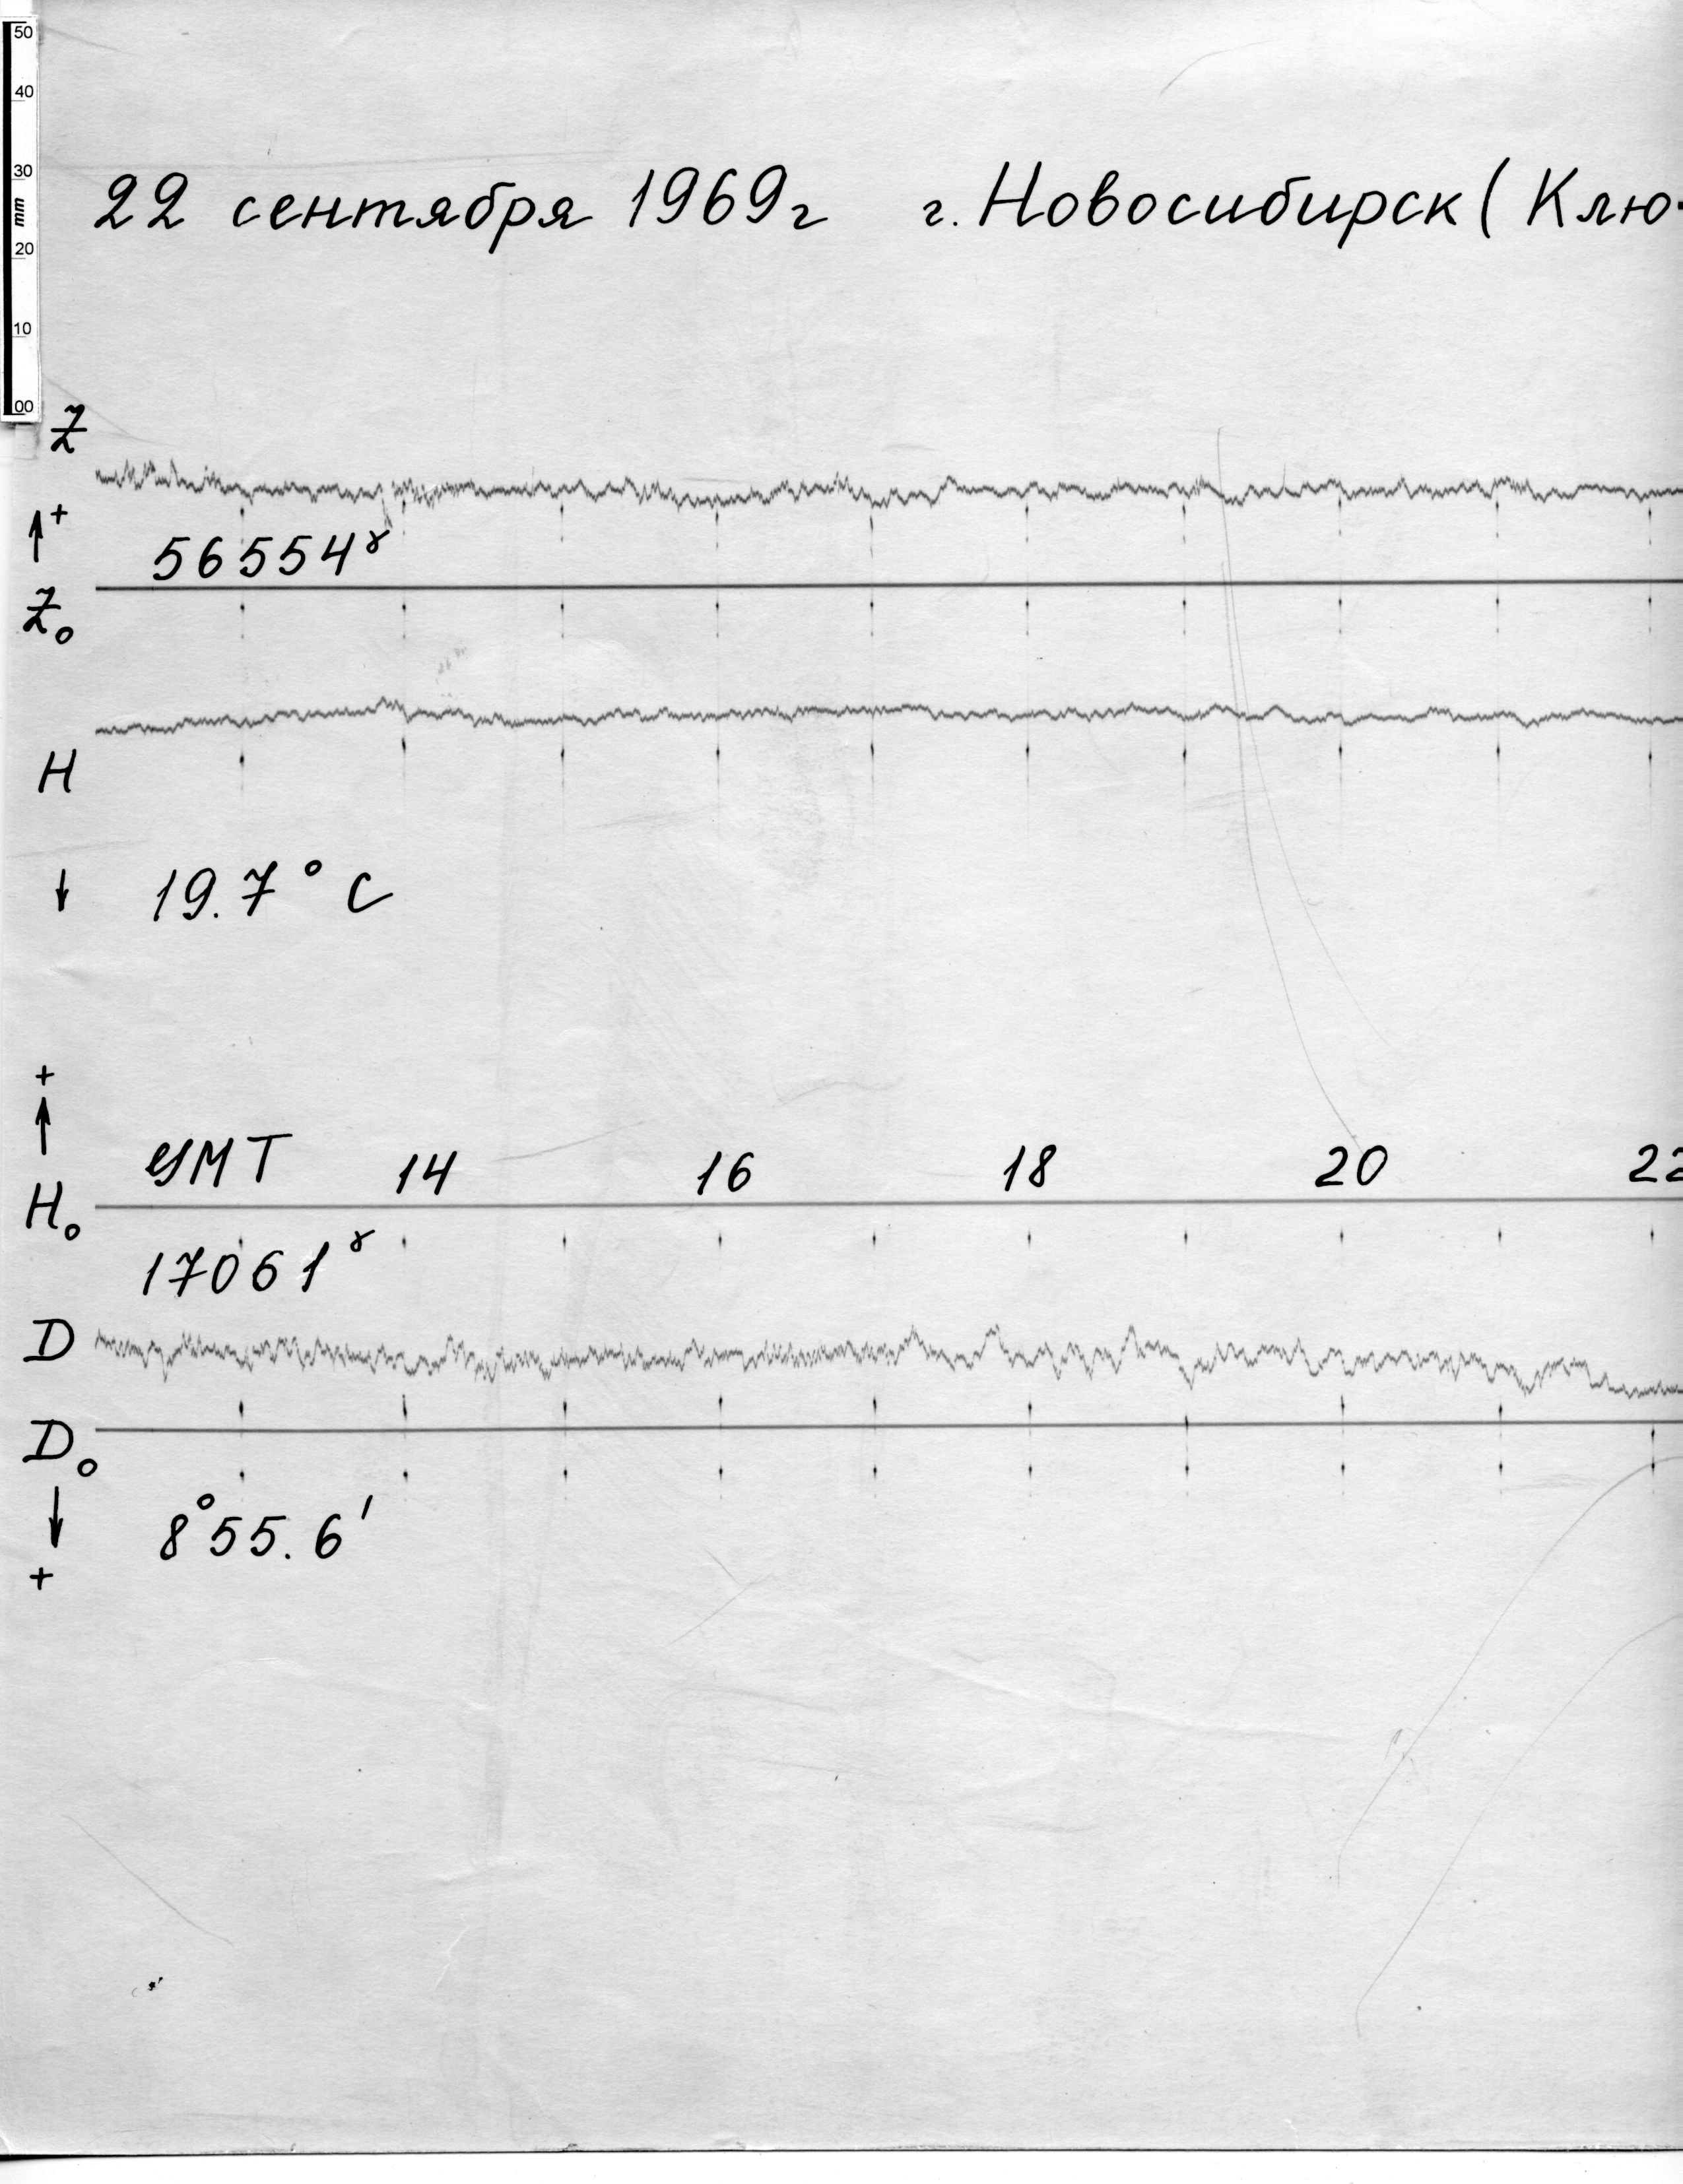 50
40
30
mm
20
10
00
22 сентября 1969г г. Новосибирск ( Клю
Z
+
56554γ
Z₀
H
19.7° C
+
УМТ 14 16 18 20 22
H₀
17061γ
D
D₀
8°55.6'
+